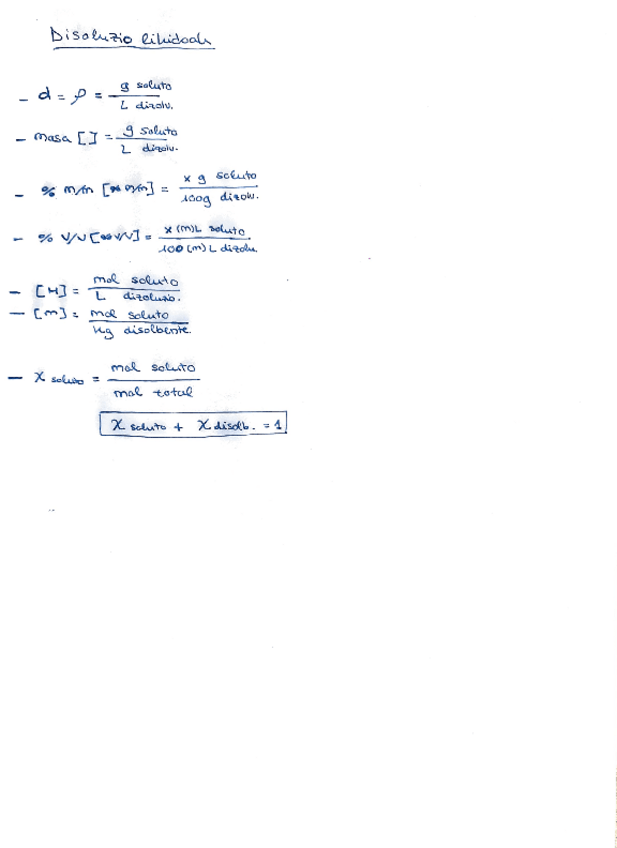 Disoluzio likidoak
- d = ρ = g soluto / L dizolu.
- masa [] = g soluto / L dizolu.
- % m/m [ m/m] = x g soluto / 100g dizolu.
- % V/V [ V/V] = x (m)L soluto / 100 (m) L dizolu.
- [M] = mol soluto / L dizoluzio.
- [m] = mol soluto / Kg disolbente.
- X soluto = mol soluto / mol total
X soluto + X disolb. = 1